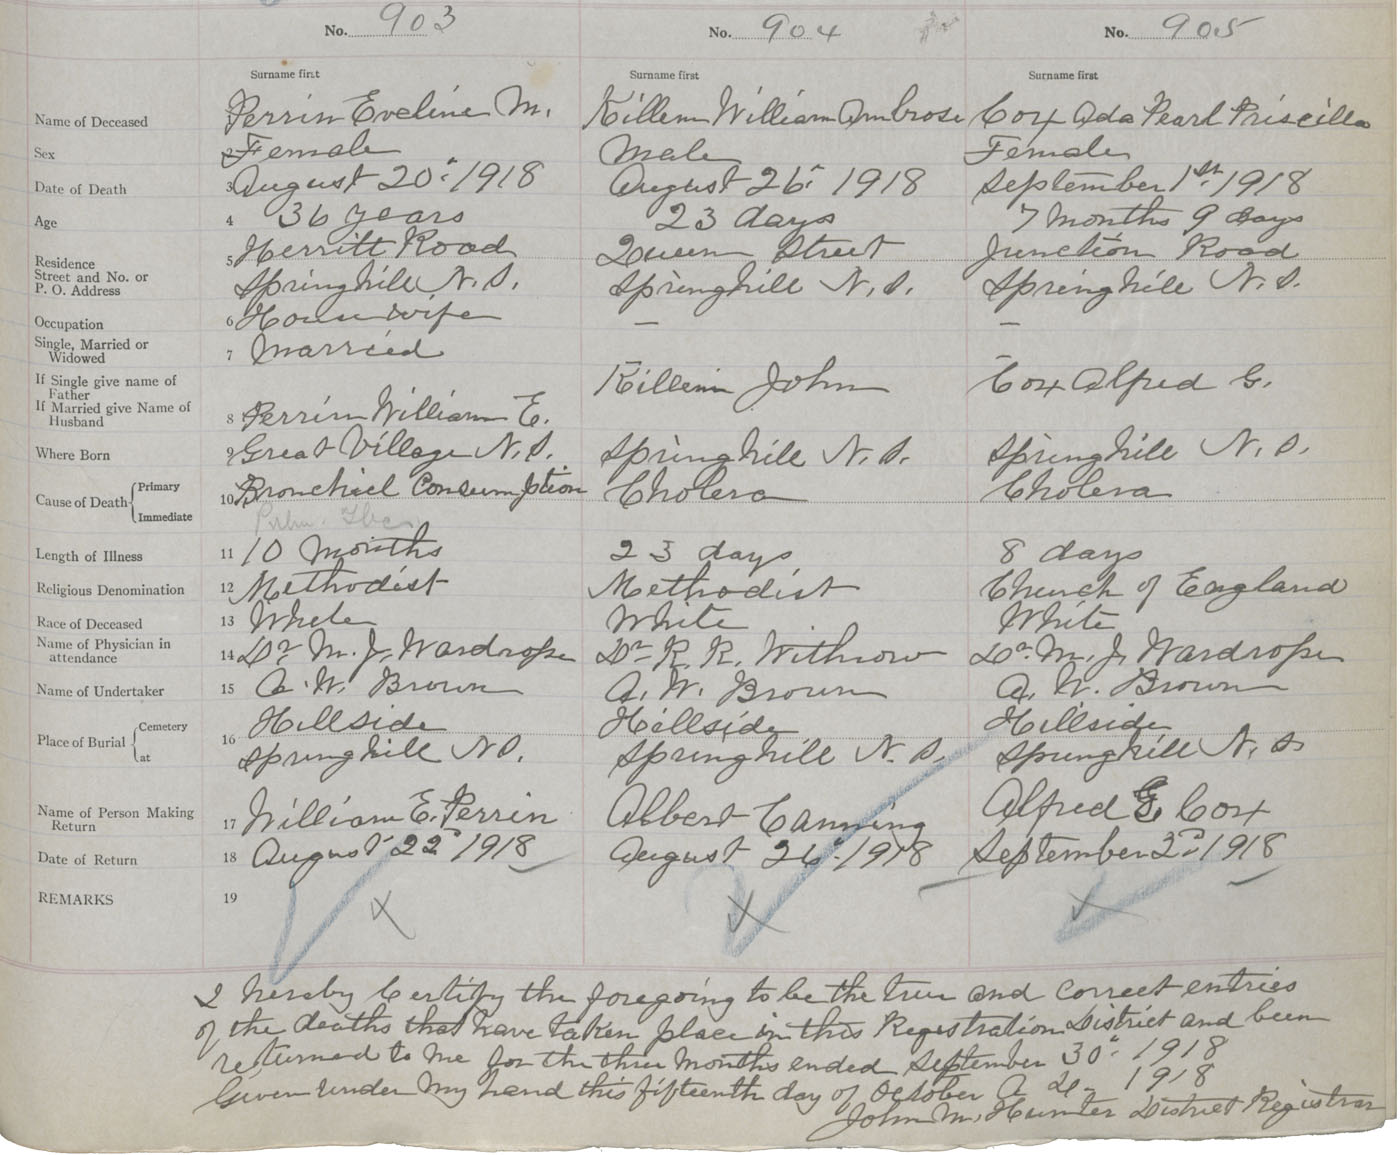 No. 903 No. 904 No. 905
Surname first Surname first Surname first
Name of Deceased 1 Perrin Eveline M. Killem William Ambrose Cox Ada Pearl Priscilla
Sex 2 Female Male Female
Date of Death 3 August 20" 1918 August 26" 1918 September 1st 1918
Age 4 36 years 23 days 7 Months 9 days
Residence 5 Herritt Road Queen Street Junction Road
Street and No. or
P. O. Address Springhile N.S. Springhill N.S. Springhill N.S.
Occupation 6 House wife — —
Single, Married or
Widowed 7 Married — —
If Single give name of
Father Killem John Cox Alfred G.
If Married give Name of
Husband 8 Perrin William E.
Where Born 9 Great Village N.S. Springhill N.S. Springhill N.S.
Cause of Death Primary 10 Bronchiel Consumption Cholera Cholera
Immediate Pulm. Tbc
Length of Illness 11 10 Months 23 days 8 days
Religious Denomination 12 Methodist Methodist Church of England
Race of Deceased 13 White White White
Name of Physician in
attendance 14 Dr M. J. Wardrope Dr R. R. Withrow Dr. M. J. Wardrope
Name of Undertaker 15 A. W. Brown A. W. Brown A. W. Brown
Place of Burial Cemetery 16 Hillside Hillside Hillside
at Springhill N.S. Springhill N.S. Springhill N.S
Name of Person Making
Return 17 William E. Perrin Albert Canning Alfred G Cox
Date of Return 18 August 22d 1918 August 26" 1918 September 2d 1918
REMARKS 19 X X X
I hereby Certify the foregoing to be the true and correct entries
of the deaths that have taken place in this Registration District and been
returned to me for the three months ended September 30" 1918
Given under My hand this fifteenth day of October A D. 1918
John M. Hunter District Registrar